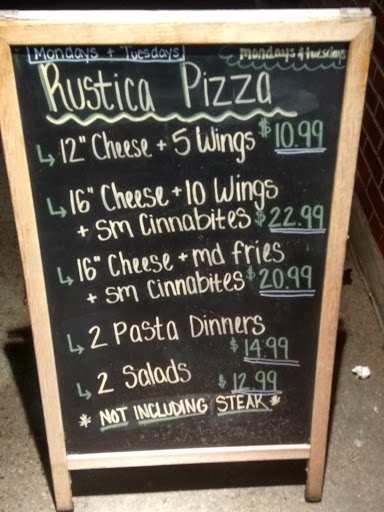 Mondays + Tuesdays
Mondays + Tuesdays
Rustica Pizza
↳ 12" Cheese + 5 Wings $10.99
↳ 16" Cheese + 10 Wings
+ sm Cinnabites $22.99
↳ 16" Cheese + md fries
+ sm cinnabites $20.99
↳ 2 Pasta Dinners
$14.99
↳ 2 Salads $12.99
* NOT INCLUDING STEAK *